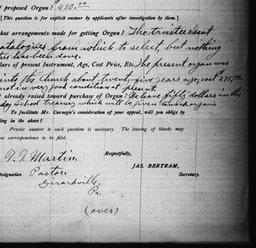 f proposed Organ? 450.00
[This question is for explicit answer by applicants after investigation by them.]
hat arrangements made for getting Organ? The trustees sent
catalogues from which to select, but nothing
has been done.
lars of present Instrument, Age, Cost Price, Etc. The present organ was
into the church about twenty-five years ago, cost
not in very good condition at present.
already raised toward purchase of Organ? We have fifty dollars in the
day School treasury which will be given toward organ
To facilitate Mr. Carnegie's consideration of your appeal, will you oblige by
ling in the above?
Precise answer to each question is necessary. The leaving of blanks may
use correspondence to be filed.
Respectfully,
Martin
JAS. BERTRAM,
Designation Pastor
Secretary.
Girardville,
Pa.
(over)